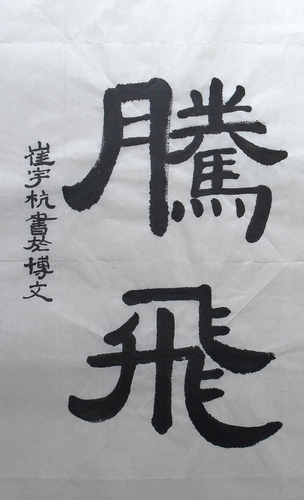 騰飛
崔宇杭書於博文